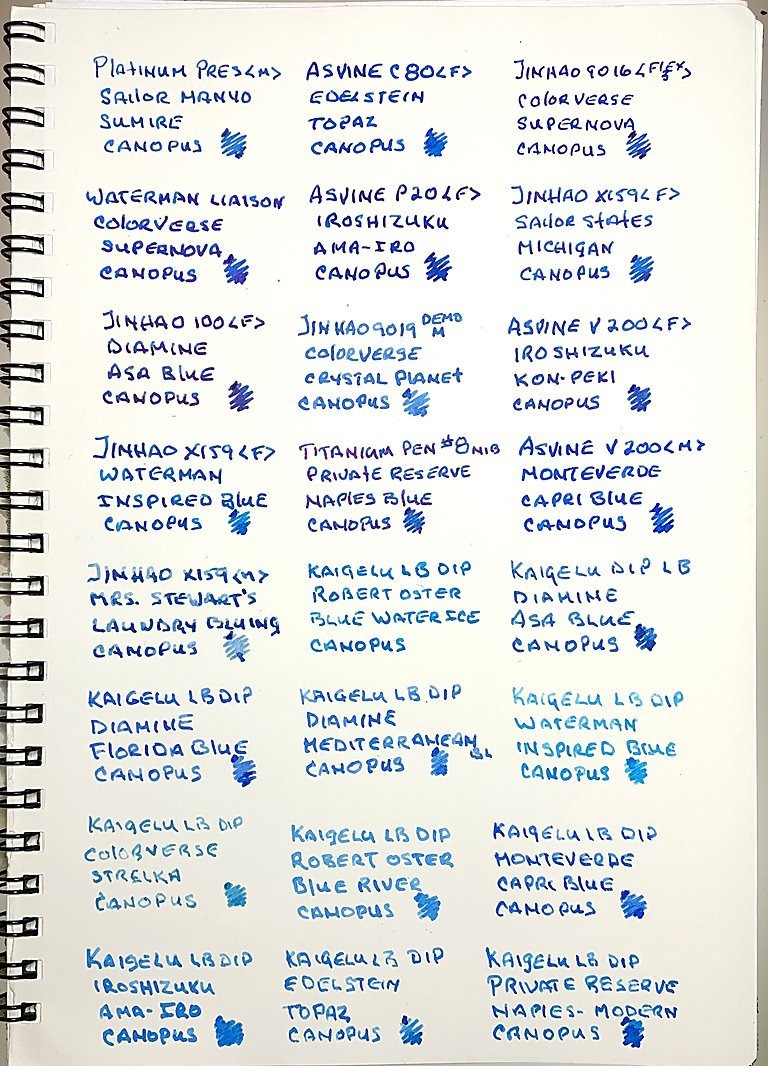 PLATINUM PRES<M>
SAILOR MANYO
SUMIRE
CANOPUS
ASVINE C80<F>
EDELSTEIN
TOPAZ
CANOPUS
JINHAO 9016<FLEX>
COLORVERSE
SUPERNOVA
CANOPUS
WATERMAN LIAISON
COLORVERSE
SUPERNOVA
CANOPUS
ASVINE P20<F>
IROSHIZUKU
AMA-IRO
CANOPUS
JINHAO X159<F>
SAILOR STATES
MICHIGAN
CANOPUS
JINHAO 100<F>
DIAMINE
ASA BLUE
CANOPUS
JINHAO 9019 DEMO M
COLORVERSE
CRYSTAL PLANET
CANOPUS
ASVINE V200<F>
IROSHIZUKU
KON-PEKI
CANOPUS
JINHAO X159<F>
WATERMAN
INSPIRED BLUE
CANOPUS
TITANIUM PEN #8 NIB
PRIVATE RESERVE
NAPLES BLUE
CANOPUS
ASVINE V200<M>
MONTEVERDE
CAPRI BLUE
CANOPUS
JINHAO X159<M>
MRS. STEWART'S
LAUNDRY BLUING
CANOPUS
KAIGELU LB DIP
ROBERT OSTER
BLUE WATER ICE
CANOPUS
KAIGELU DIP LB
DIAMINE
ASA BLUE
CANOPUS
KAIGELU LB DIP
DIAMINE
FLORIDA BLUE
CANOPUS
KAIGELU LB DIP
DIAMINE
MEDITERRANEAN BL
CANOPUS
KAIGELU LB DIP
WATERMAN
INSPIRED BLUE
CANOPUS
KAIGELU LB DIP
COLORVERSE
STRELKA
CANOPUS
KAIGELU LB DIP
ROBERT OSTER
BLUE RIVER
CANOPUS
KAIGELU LB DIP
MONTEVERDE
CAPRI BLUE
CANOPUS
KAIGELU LB DIP
IROSHIZUKU
AMA-IRO
CANOPUS
KAIGELU LB DIP
EDELSTEIN
TOPAZ
CANOPUS
KAIGELU LB DIP
PRIVATE RESERVE
NAPLES-MODERN
CANOPUS